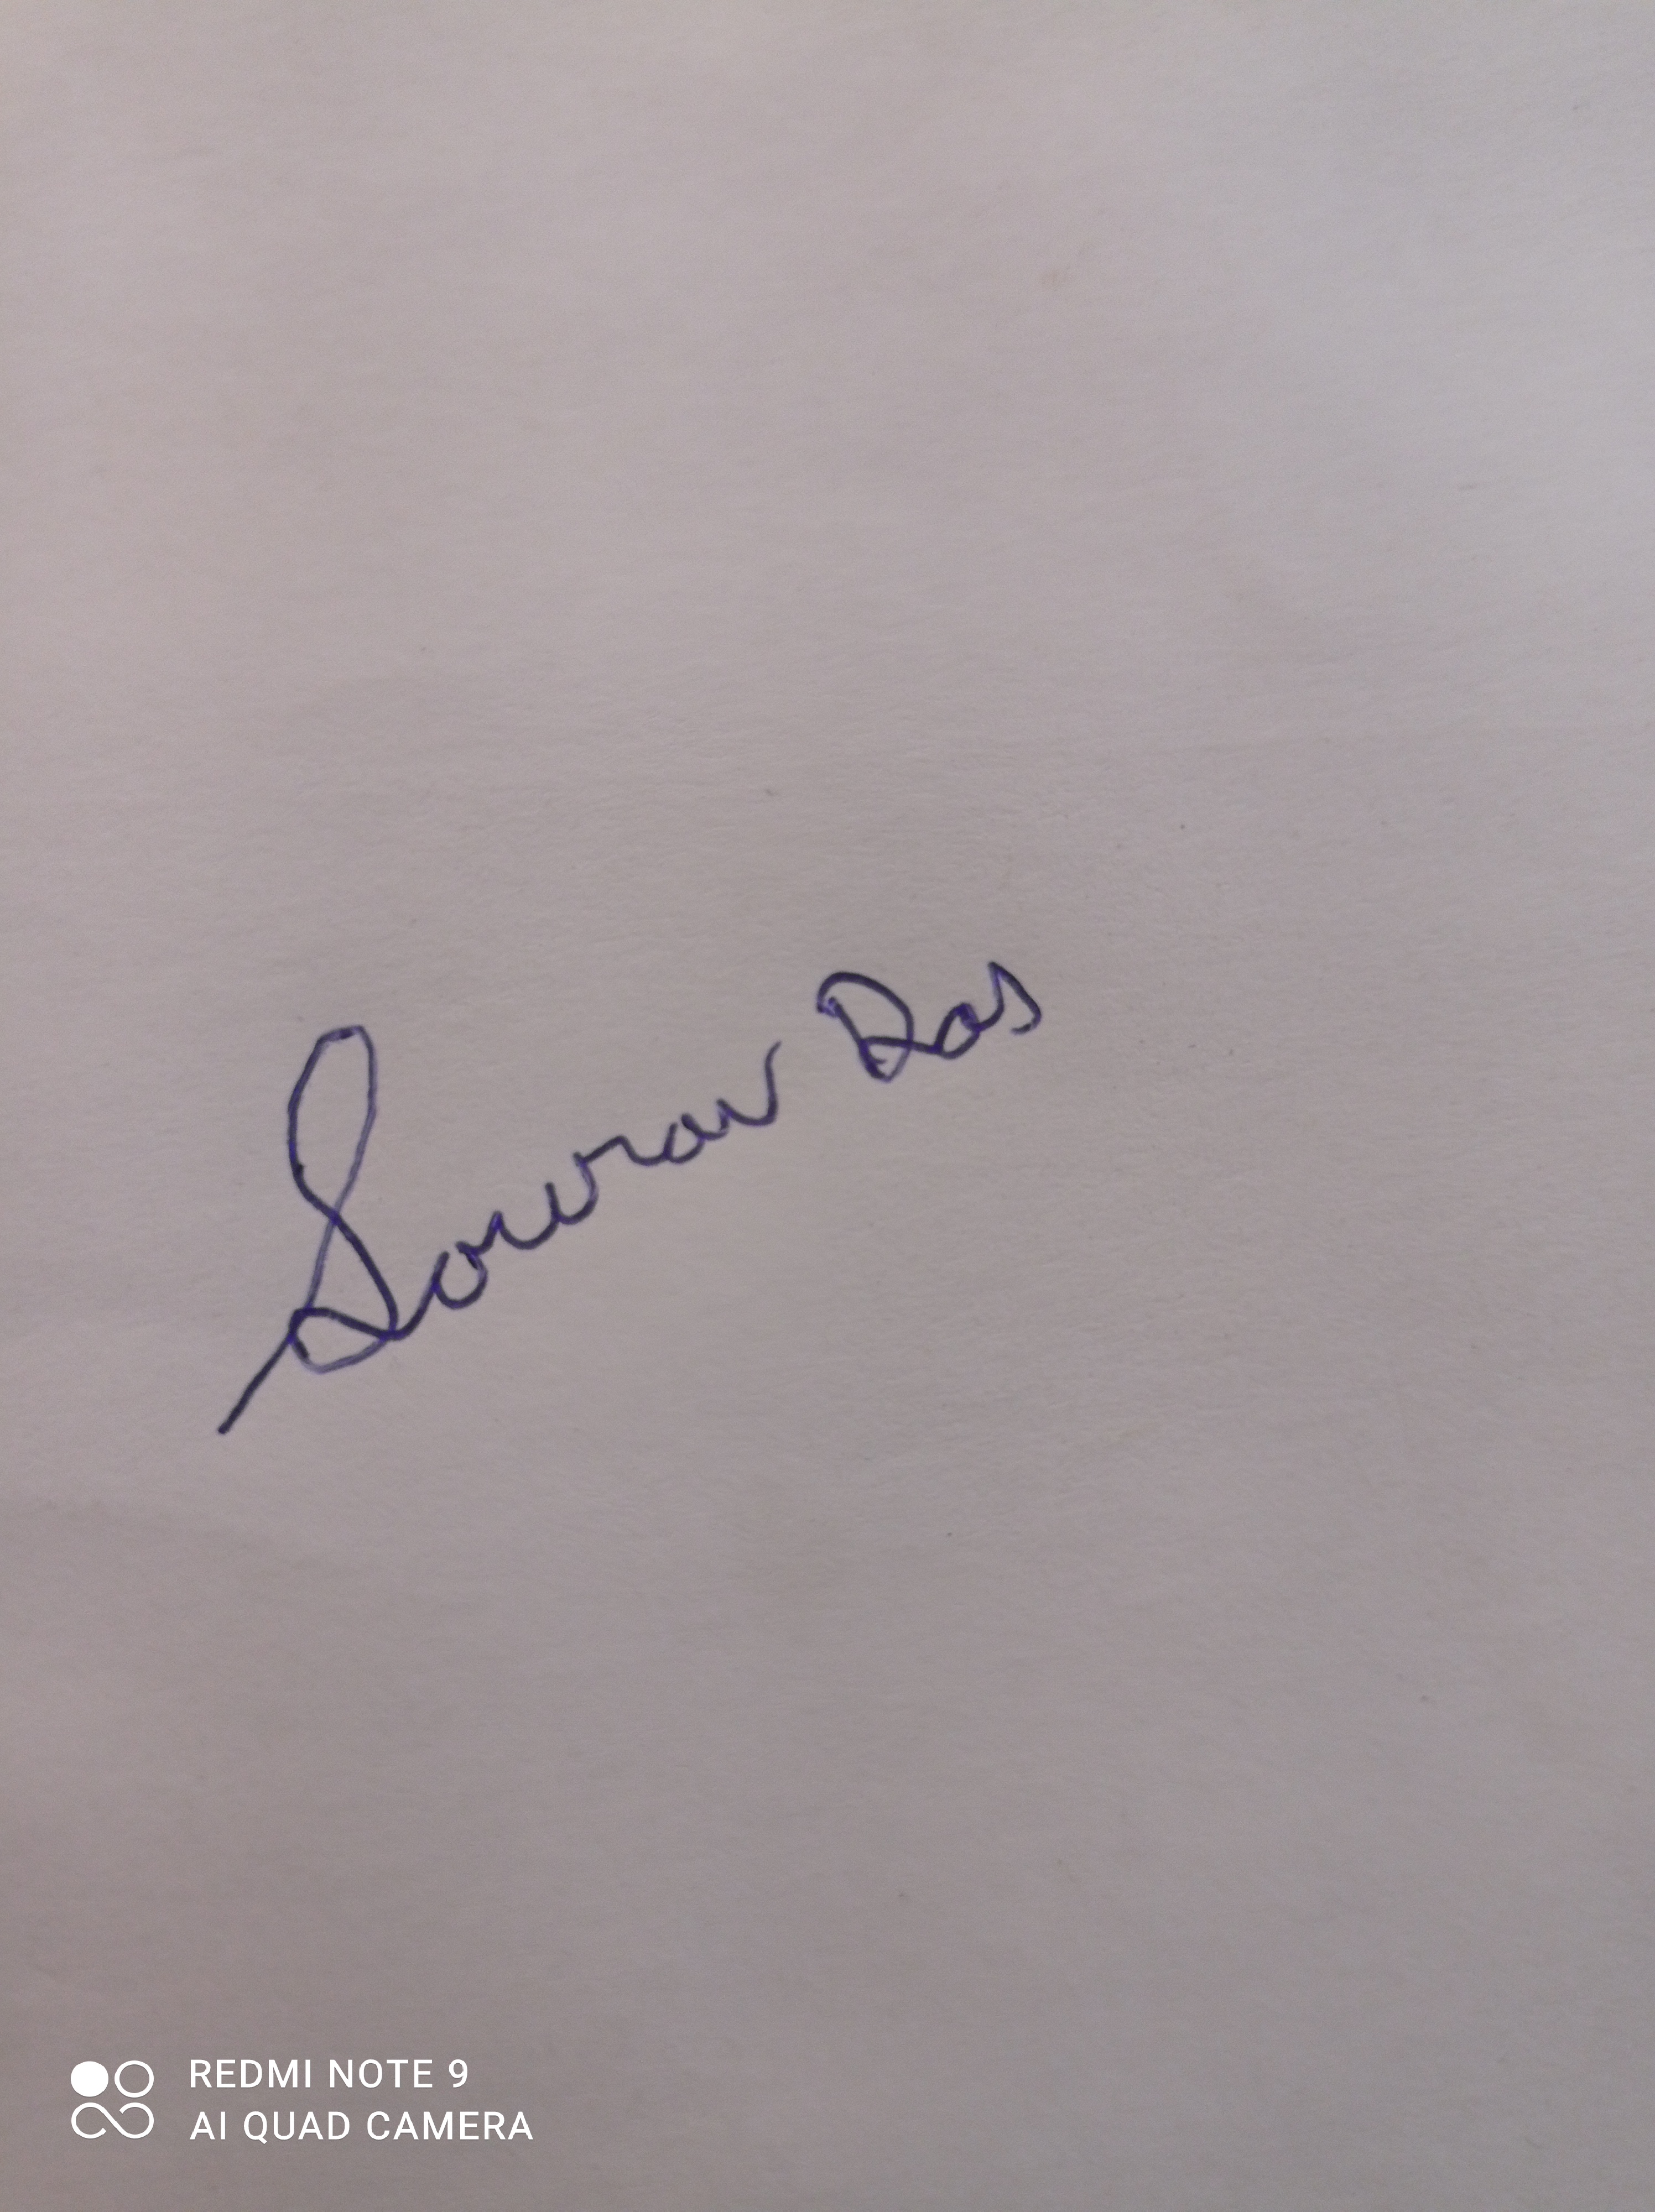 Sourav Das
REDMI NOTE 9
AI QUAD CAMERA